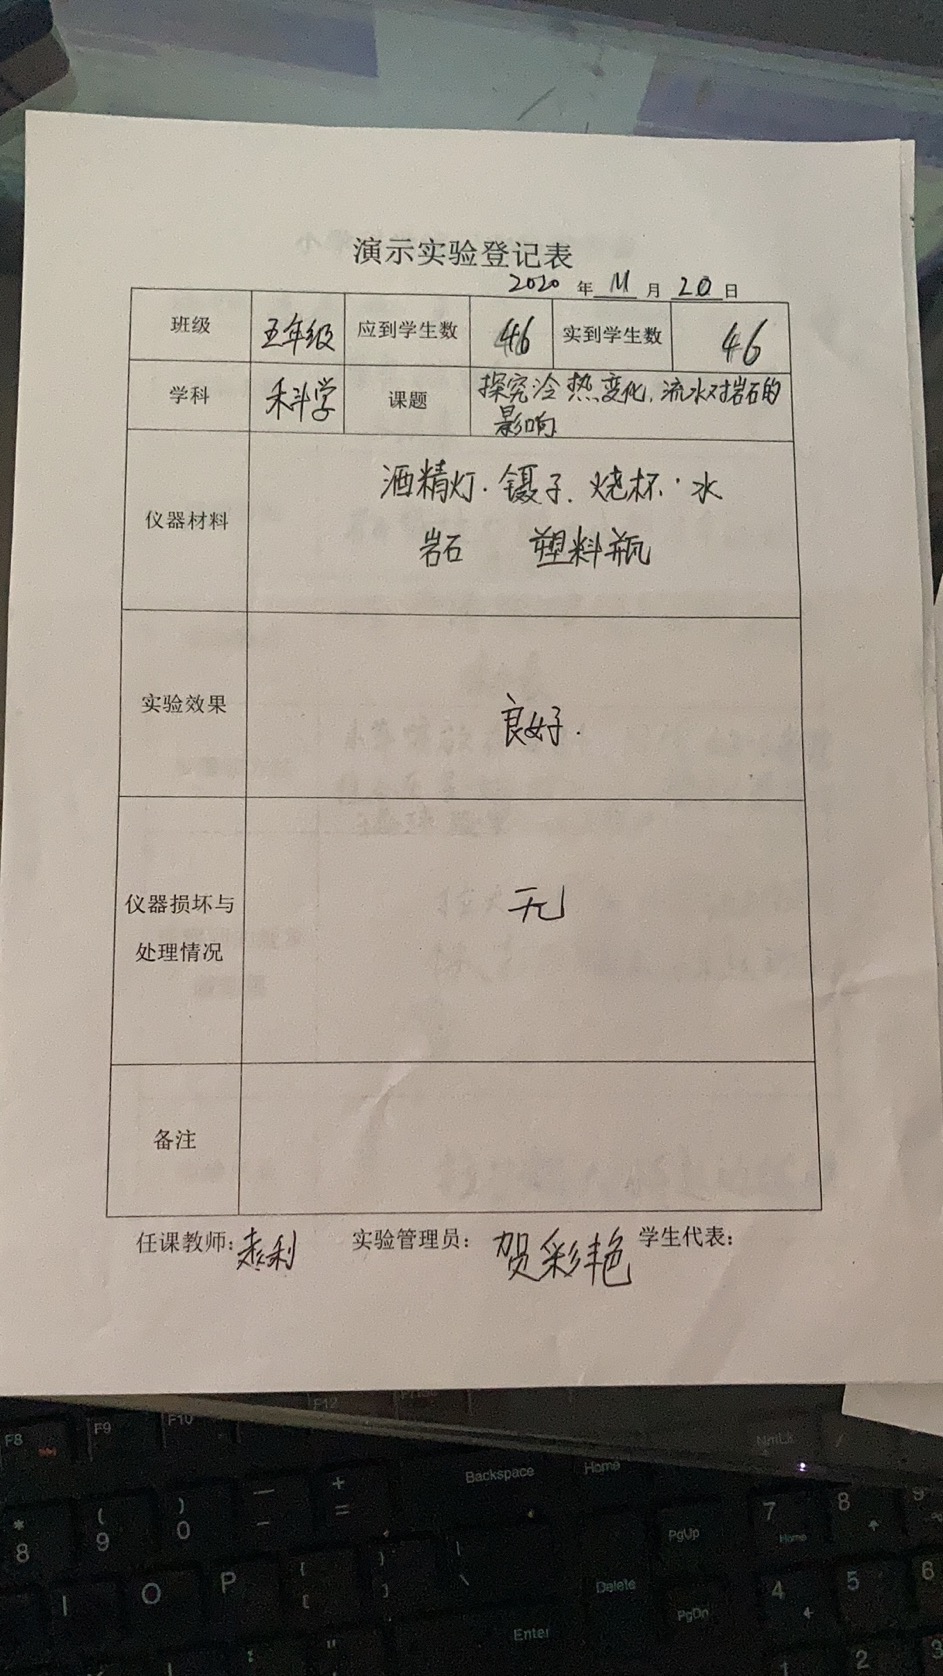 演示实验登记表
2020 年 11 月 20 日
班级 五年级 应到学生数 46 实到学生数 46
学科 科学 课题 探究冷热变化,流水对岩石的
影响
仪器材料
酒精灯.镊子.烧杯.水
岩石 塑料瓶
实验效果 良好.
仪器损坏与
处理情况
无
备注
任课教师: 实验管理员: 贺彩艳 学生代表:
F8 F9 F10 F12 NmLk /
* 8 ( 9 ) 0 — - + = Backspace Home 7 Home 8 9
I O P { [ } ] | \ Delete PgUp PgDn 4 5 6
: ; " Enter 1 2 3